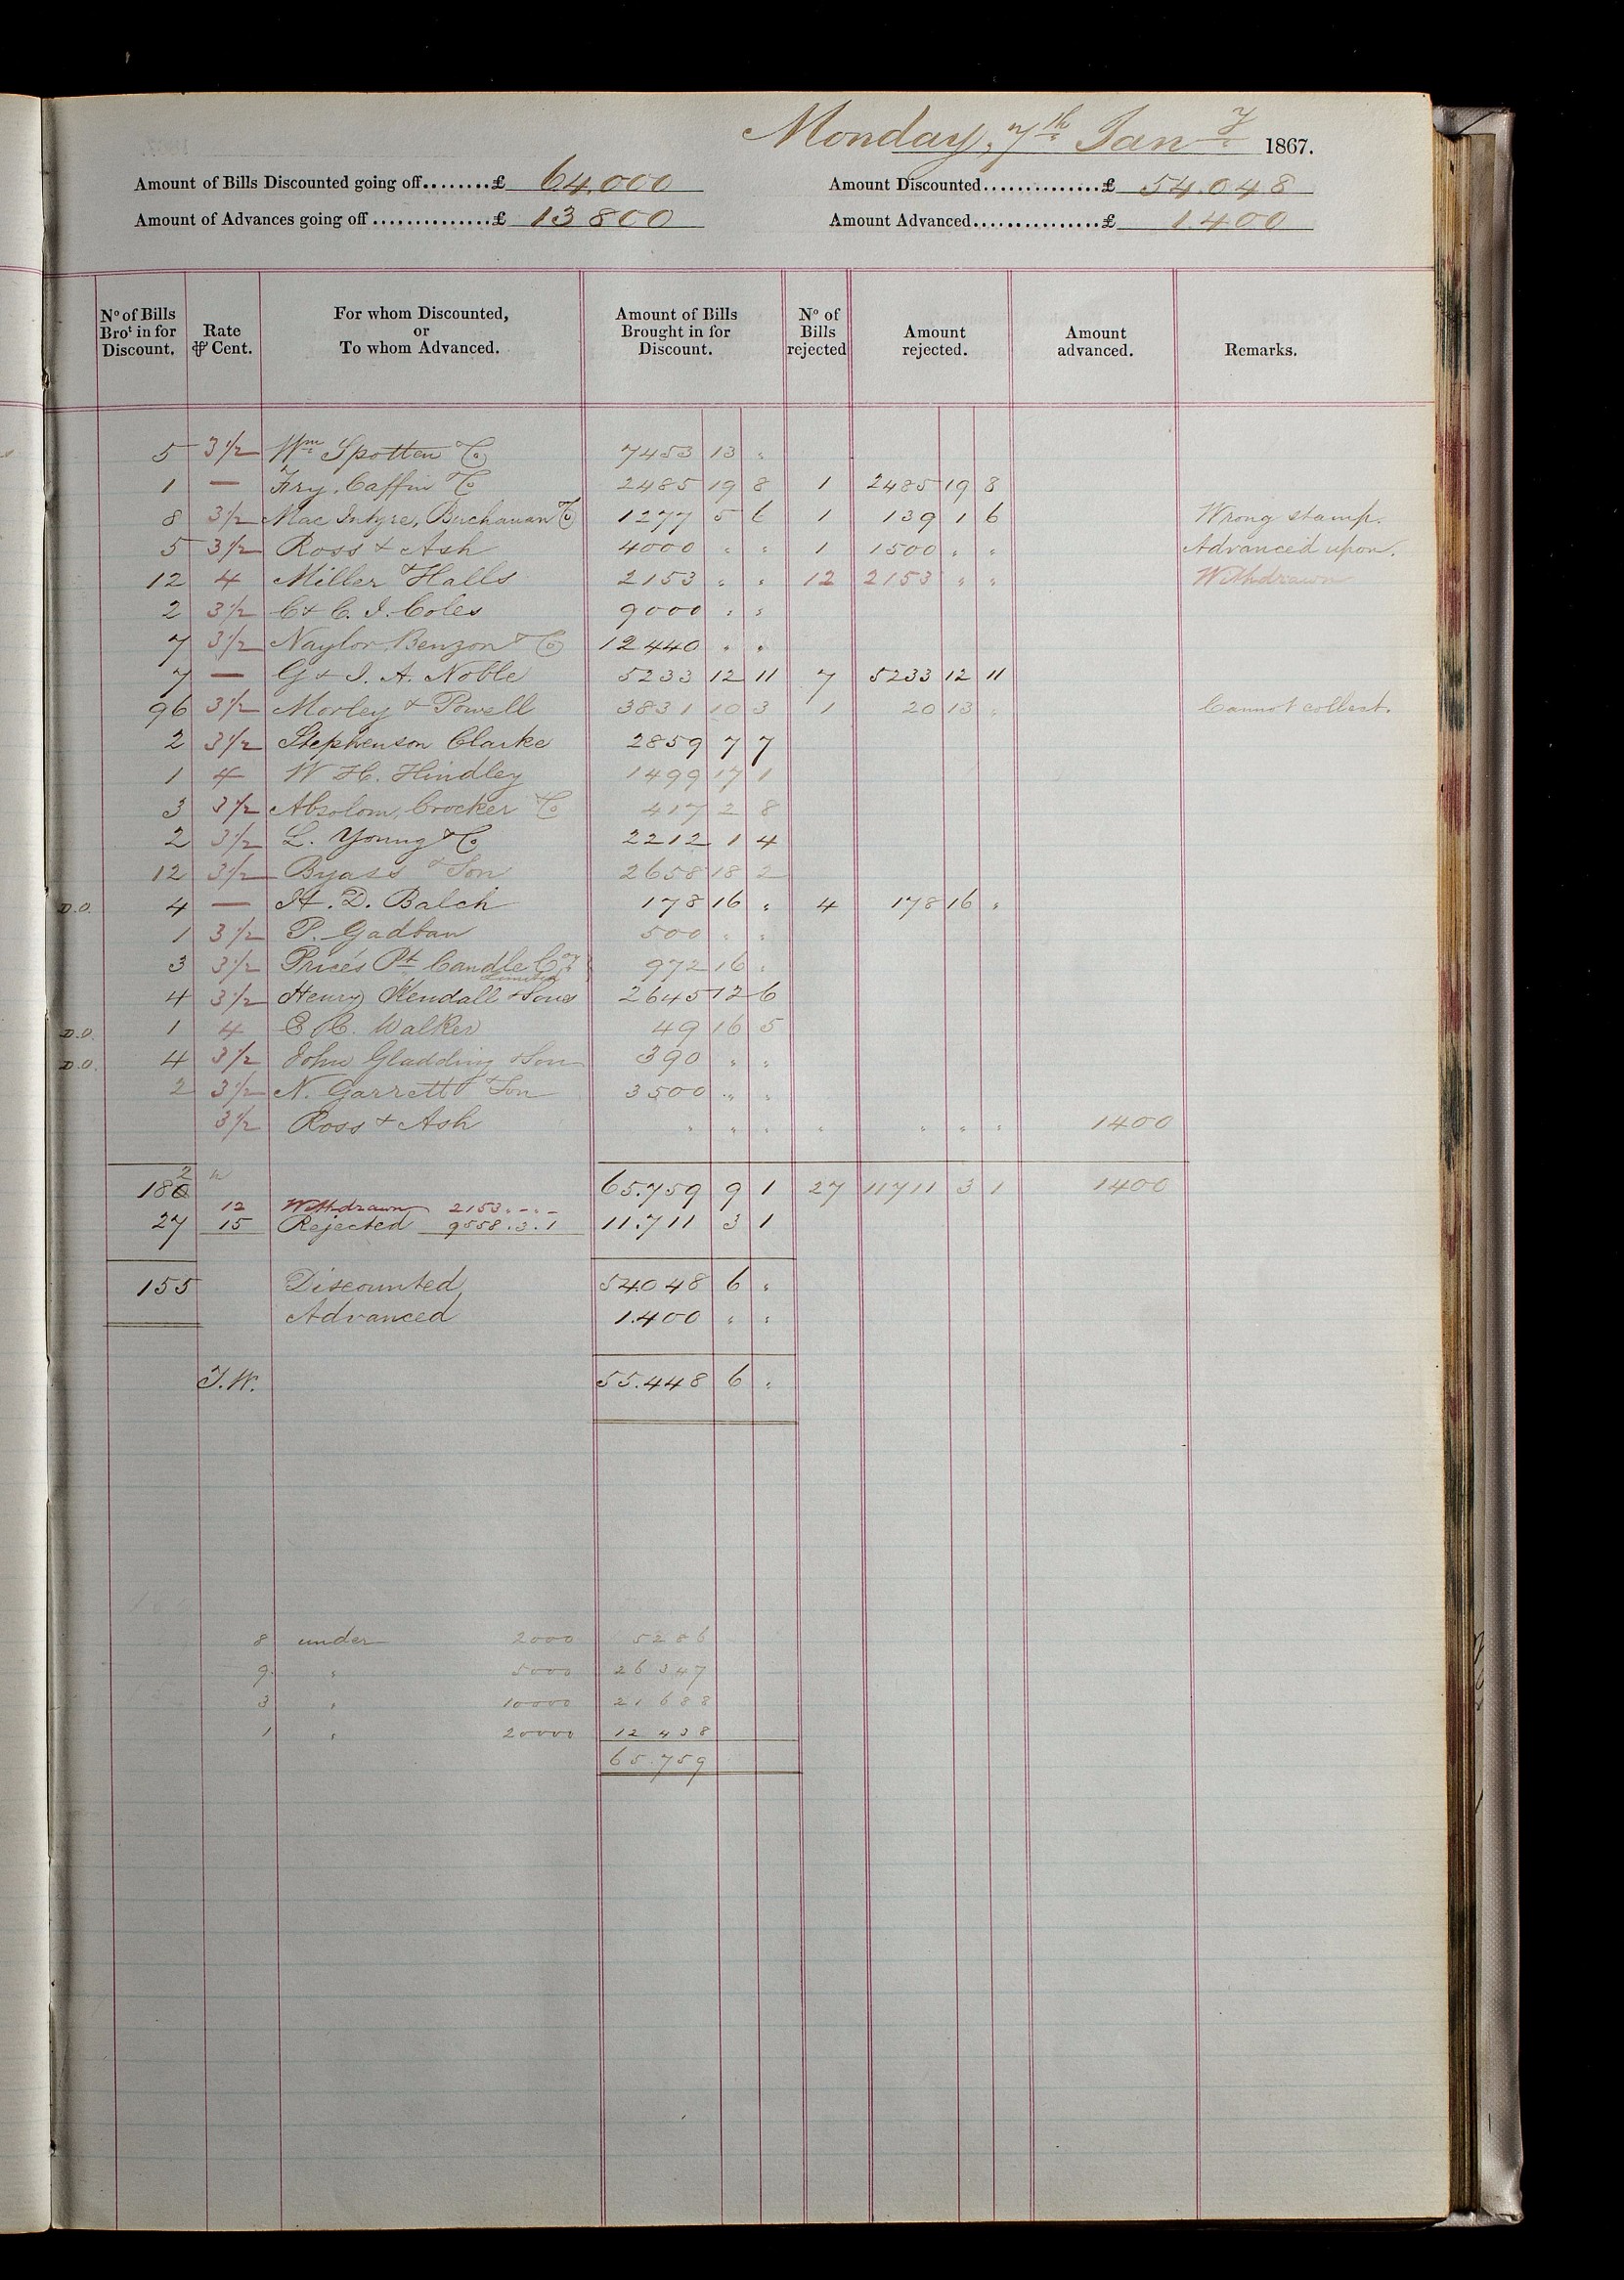 Monday, 7th Jany 1867.
Amount of Bills Discounted going off........£ 64.000 Amount Discounted...............£ 54.048
Amount of Advances going off...............£ 13800 Amount Advanced................£ 1.400
No of Bills Brot in for Discount. Rate ⅌ Cent. For whom Discounted, or To whom Advanced. Amount of Bills Brought in for Discount. No of Bills rejected Amount rejected. Amount advanced. Remarks.
5 3½ Wm Spotten & Co 7453 13 "
1 — Fry, Caffin & Co 2485 19 8 1 2485 19 8
8 3½ Mac Intyre, Buchanan & Co 1277 5 6 1 139 1 6 Wrong stamp.
5 3½ Ross & Ash 4000 " " 1 1500 " " Advanced upon.
12 4 Miller & Halls 2153 " " 12 2153 " " Withdrawn
2 3½ C & C. I. Coles 9000 " "
7 3½ Naylor, Benzon & Co 12440 " "
7 — G & I. A. Noble 5233 12 11 7 5233 12 11
96 3½ Morley & Powell 3831 10 3 1 20 13 " Cannot collect.
2 3½ Stephenson Clarke 2859 7 7
1 4 W H. Hindley 1499 17 1
3 3½ Absolom, Crocker & Co 417 2 8
2 3½ L. Young & Co 2212 1 4
12 3½ Byass & Son 2658 18 2
D.O. 4 — H. D. Balch 178 16 " 4 178 16 "
1 3½ P. Gadban 500 " "
3 3½ Price's Pt Candle Coy Limited 972 16 "
4 3½ Henry Kendall & Sons 2645 12 6
D.O. 1 4 E. C. Walker 49 16 5
D.O. 4 3½ John Gladding & Son 390 " "
2 3½ N. Garrett & Son 3500 " "
3½ Ross & Ash " " " " " " " 1400
182 65.759 9 1 27 11711 3 1 1400
12 Withdrawn 2153 . - . -
27 15 Rejected 9558 . 3 . 1 11.711 3 1
155 Discounted 54048 6 "
Advanced 1.400 " "
T.W. 55.448 6 "
8 under 2000 5286
9 " 5000 26347
3 " 10000 21688
1 " 20000 12438
65.759